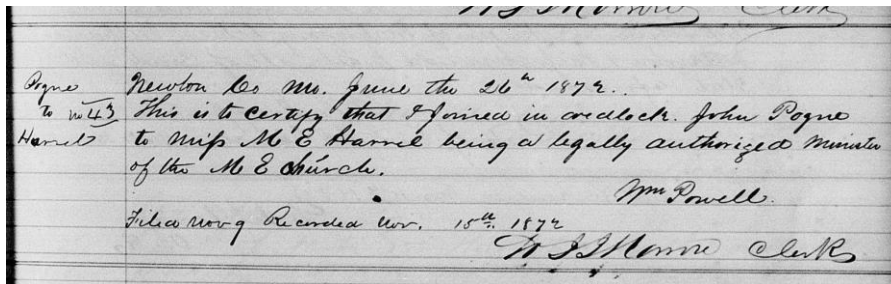 Clerk
Pogue
to no 43
Harrel
Newton Co Mo. June the 26th 1872.
This is to certify that I joined in wedlock. John Pogue
to miss M E Harrel being a legally authorized minister
of the M E church.
Wm Powell.
Filed Nov 9 Recorded Nov. 15th 1872
Clerk